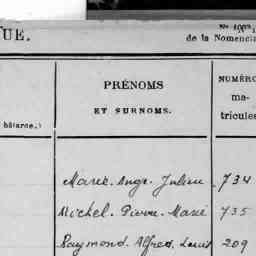 UE.
de la Nomencla
PRÉNOMS
ET SURNOMS.
NUMÉRO
ma-
tricules
bâtarde.)
Marie. Ange. Julien 734
Michel. Pierre. Marie 735
Raymond. Alfred. Louis 209